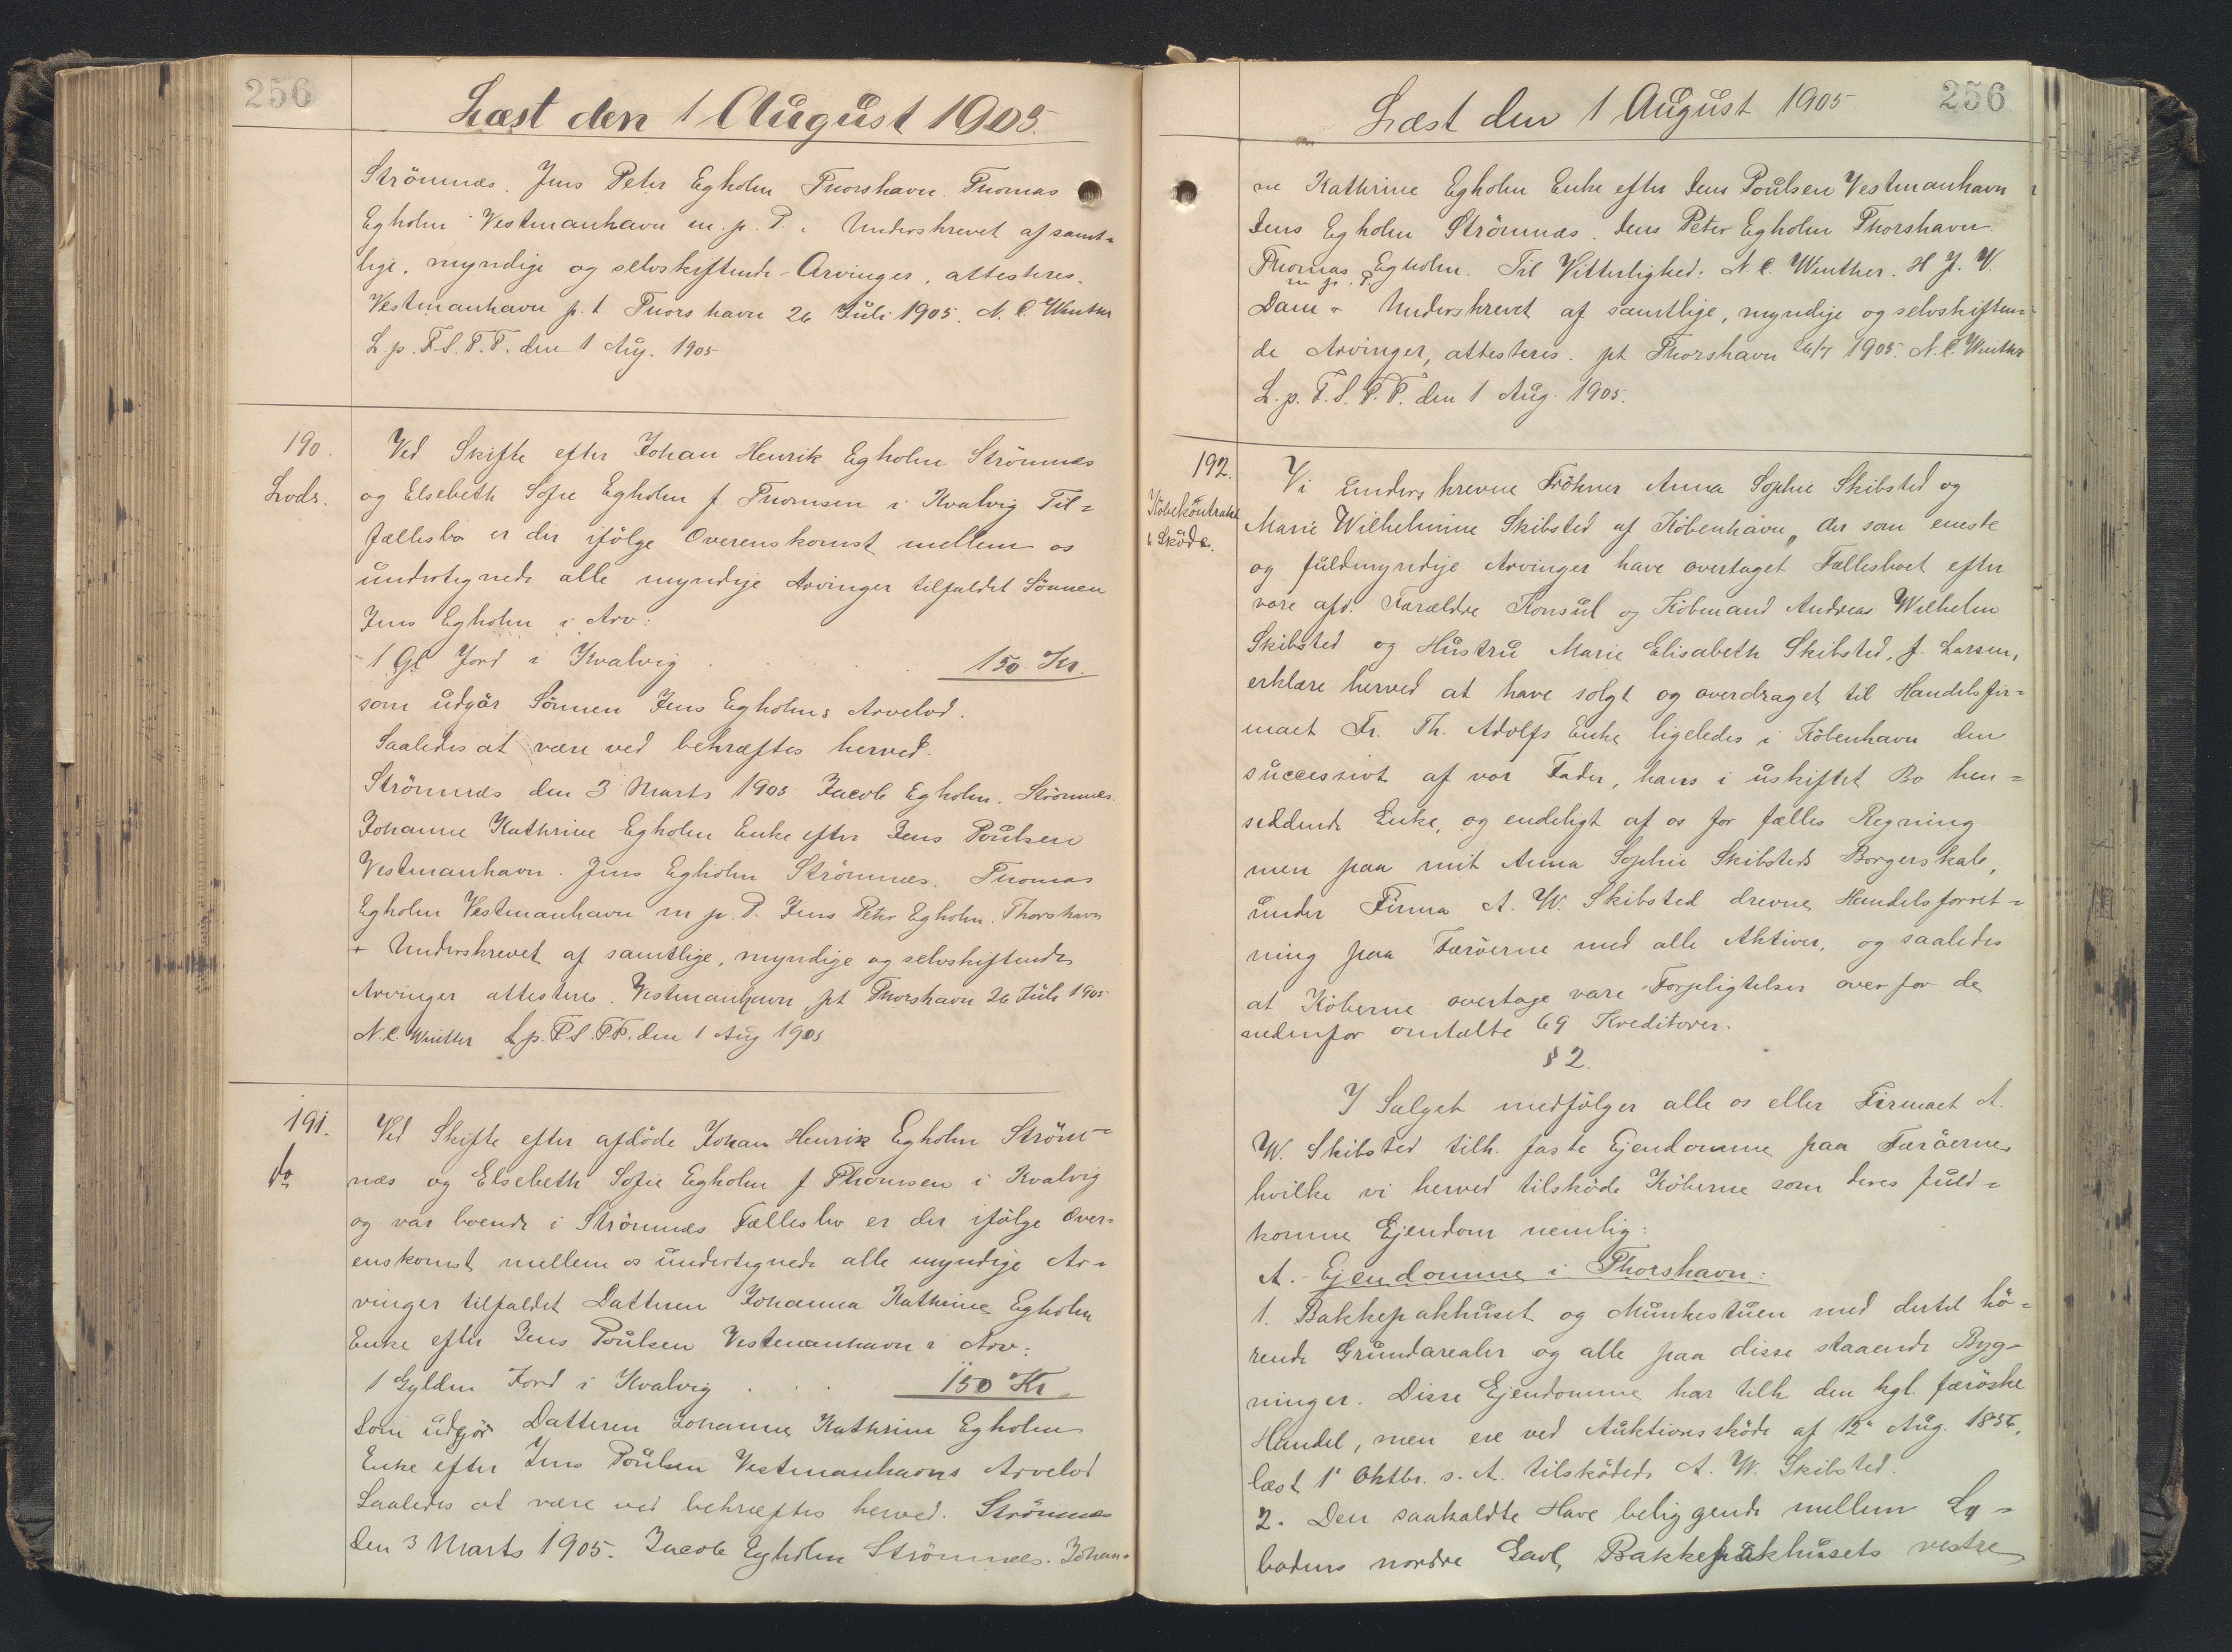 256
Læst den 1 August 1905.
Strömnæs. Jens Peter Egholm Thorshavn. Thomas
Egholm Vestmanhavn m. p. P. Underskrevet af samt-
lige, myndige og selvskiftende Arvinger, attesteres.
Vestmanhavn p. t Thorshavn 26 Juli 1905. N. C. Winther
L. p. F. S. T. T. den 1 Aug. 1905
190.
Lods.
Ved Skifte efter Johan Henrik Egholm Strömnæs
og Elsebeth Sofie Egholm f. Thomsen i Kvalvig Til=
fællesbo er der ifölge Overenskomst mellem os
undertegnede alle myndige Arvinger tilfaldet Sönnen
Jens Egholm i Arv:
1 Gl Jord i Kvalvig . . . . 150 Kr.
som udgör Sönnen Jens Egholms Arvelod.
Saaledes at være ved bekræftes herved.
Strömnæs den 3 Marts 1905 Jacob Egholm. Strömnæs.
Johanne Kathrine Egholm Enke efter Jens Poulsen
Vestmanhavn. Jens Egholm Strömnæs. Thomas
Egholm Vestmanhavn m p. P. Jens Peter Egholm. Thorshavn
+ Underskrevet af samtlige, myndige og selvskiftende
Arvinger attesteres. Vestmanhavn pt Thorshavn 26 Juli 1905
N. C. Winther L p. F S. T T. den 1 Aug 1905
191.
do
Ved Skifte efter aflöde Johan Henrik Egholm Ström=
næs og Elsebeth Sofie Egholm f Thomsen i Kvalvig
og var boende i Strömnæs Fællesbo er der ifölge Over=
enskomst mellem os undertegnede alle myndige Ar=
vinger tilfaldet Datteren Johanna Kathrine Egholm
Enke efter Jens Poulsen Vestmanhavn i Arv:
1 Gylden Jord i Kvalvig . . . 150 Kr
Som udgör Datteren Johanne Kathrine Egholm
Enke efter Jens Poulsen Vestmanhavns Arvelod
Saaledes at være ved bekræftes herved. Strömnæs
den 3 Marts 1905. Jacob Egholm Strömnæs. Johan=
Læst den 1 August 1905
256
ne Kathrine Egholm Enke efter Jens Poulsen Vestmanhavn
Jens Egholm Strömnæs. Jens Peter Egholm Thorshavn.
Thomas Egholm. Til Vitterlighed: N. C. Winther. H J. V.
m p. P
Dam + Underskrevet af samtlige, myndige og selvskiften=
de Arvinger, attesteres. pt Thorshavn 26/7 1905. N. C. Winther
L. p. F. S. T. T. den 1 Aug. 1905.
192.
Köbekontrakt
& Sköde.
Vi underskrevne Frökner Anna Sophie Skibsted og
Marie Wilhelmine Skibsted af Köbenhavn, der som eneste
og fuldmyndige Arvinger have overtaget Fællesboet efter
vore afd. Forældre Konsul og Köbmand Andreas Wilhelm
Skibsted og Hustru Marie Elisabeth Skibsted, f. Larsen,
erklære herved at have solgt og overdraget til Handelsfir=
maet Fr. Th. Adolfs Enke ligeledes i Köbenhavn den
successivt af vor Fader, hans i uskiftet Bo hen=
siddende Enke, og endeligt af os for fælles Regning
men paa mit Anna Sophie Skibsteds Borgerskab,
under Firma A. W. Skibsted drevne Handelsforret=
ning paa Færöerne med alle Aktiver, og saaledes
at Köberne overtage vare Forpligtelser overfor de
nedenfor omtalte 69 Kreditorer.
§ 2.
I Salget medfölger alle os eller Firmaet A.
W. Skibsted tilh. faste Ejendomme paa Færöerne
hvilke vi herved tilsköde Köberne som deres fuld=
komne Ejendom nemlig:
A. Ejendomme i Thorshavn:
1. Bakkepakhuset og Munkestuen med dertil hö=
rende Grundarealer og alle paa disse staaende Byg=
ninger. Disse Ejendomme har tilh. den kgl. færöske
Handel, men ere ved Auktionssköde af 12' Aug. 1856,
læst 1' Oktbr. s. A. tilsködede A. W. Skibsted.
2. Den saakaldte Have beliggende mellem La=
bodens nordre Gavl, Bakkepakhusets vestre